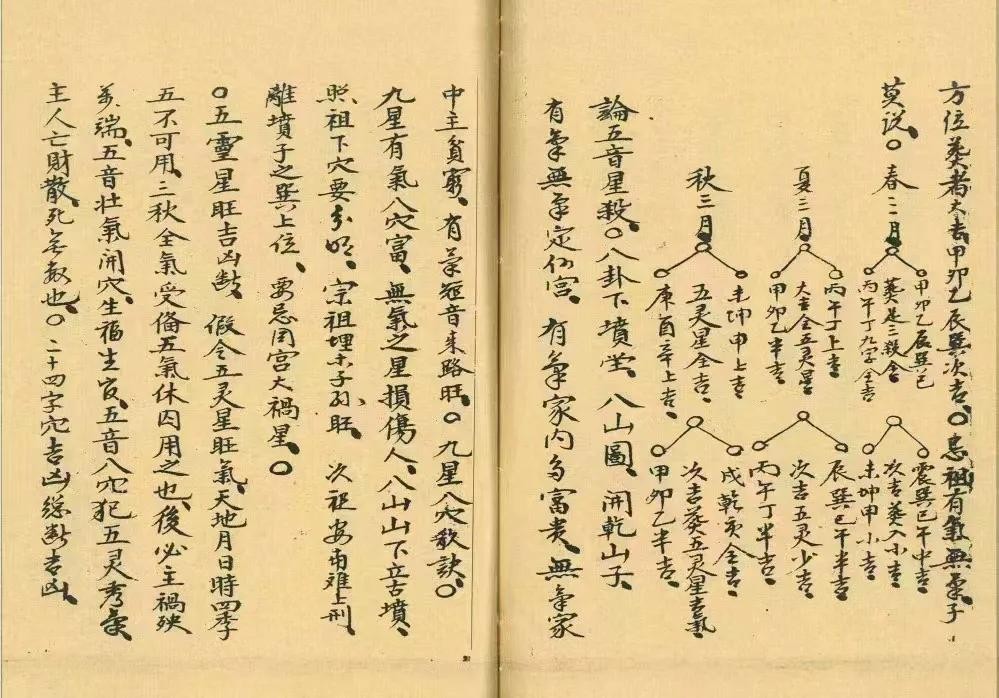 方位葬者大吉甲卯乙辰巽次吉。忌祖有氣無氣子
莫说。
春三月
甲卯乙辰巽巳
葬是三殺全
丙午丁九字全吉
震巽巳午中吉
次吉葬入小吉
未坤甲小吉
夏三月
丙午丁上吉
大吉全五灵星
甲卯乙半吉
辰巽巳午半吉
次吉五灵少吉
丙午丁半吉
秋三月
未坤甲上吉
五灵星全吉
庚酉辛上吉
戌乾亥全吉
次吉葬五灵星吉氣
甲卯乙半吉
論五音星殺。八卦下墳堂、八山圖、開乾山子、
有氣無氣定仙宫、有氣家内多富贵、無氣家
中主貧窮、有氣短音朱路旺。九星八穴秘訣。
九星有氣八穴富、無氣之星損傷人、八山山下立古墳、
照祖下穴要分明、宗祖埋于子孙旺、次祖安甬难上刑、
離墳子之巽上位、要忌闭宫大禍星。
〇五靈星旺吉凶断、假令五灵星旺氣、天地月日時四季
五不可用、三秋全氣受俻五氣休囚用之也、後必主禍殃
多端、五音壮氣開穴、生福生官、五音八穴犯五灵秀氣、
主人亡財散、死無数也。二十四字穴吉凶総断吉凶、